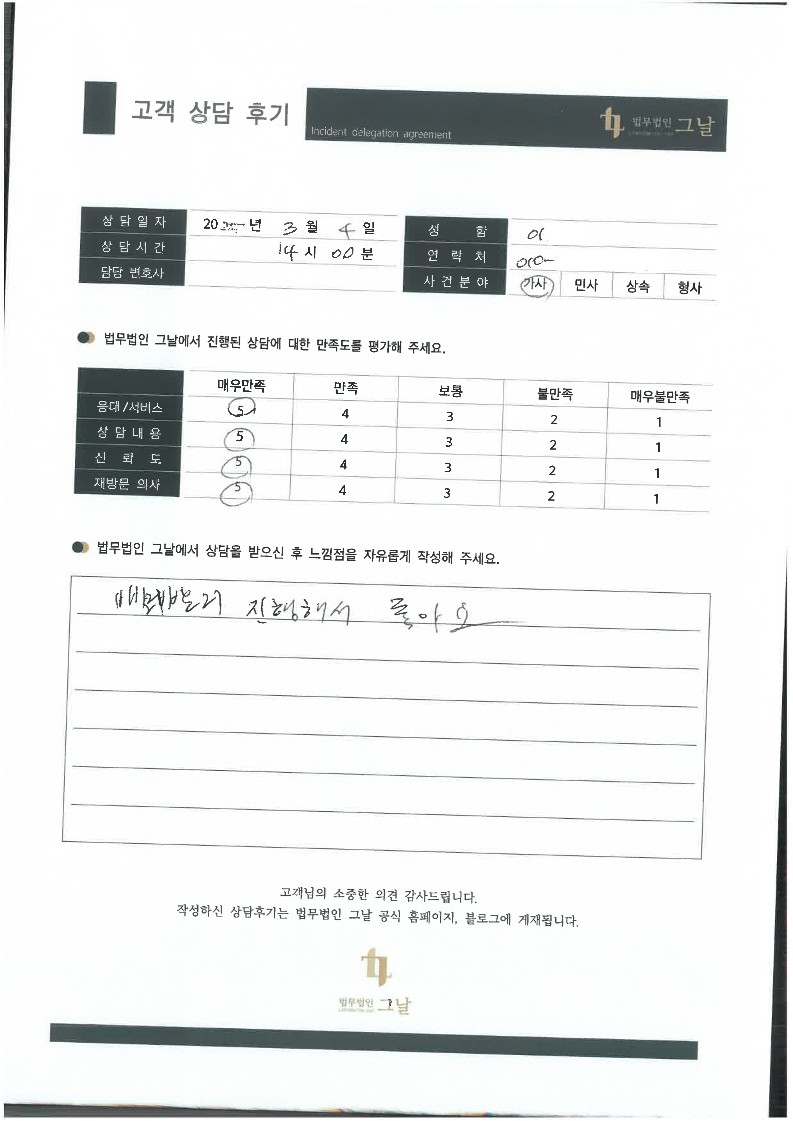 고객 상담 후기
Incident delegation agreement
법무법인 그날
상담일자 20 년 3월 4일
성 함 이
상담시간 14시 00분
연 락 처 010-
담당 변호사
사건분야 가사 민사 상속 형사
법무법인 그날에서 진행된 상담에 대한 만족도를 평가해 주세요.
매우만족 만족 보통 불만족 매우불만족
응대/서비스 5 4 3 2 1
상 담 내 용 5 4 3 2 1
신 뢰 도 5 4 3 2 1
재방문 의사 5 4 3 2 1
법무법인 그날에서 상담을 받으신 후 느낌점을 자유롭게 작성해 주세요.
진행해서 좋아요
고객님의 소중한 의견 감사드립니다.
작성하신 상담후기는 법무법인 그날 공식 홈페이지, 블로그에 게재됩니다.
법무법인 그날